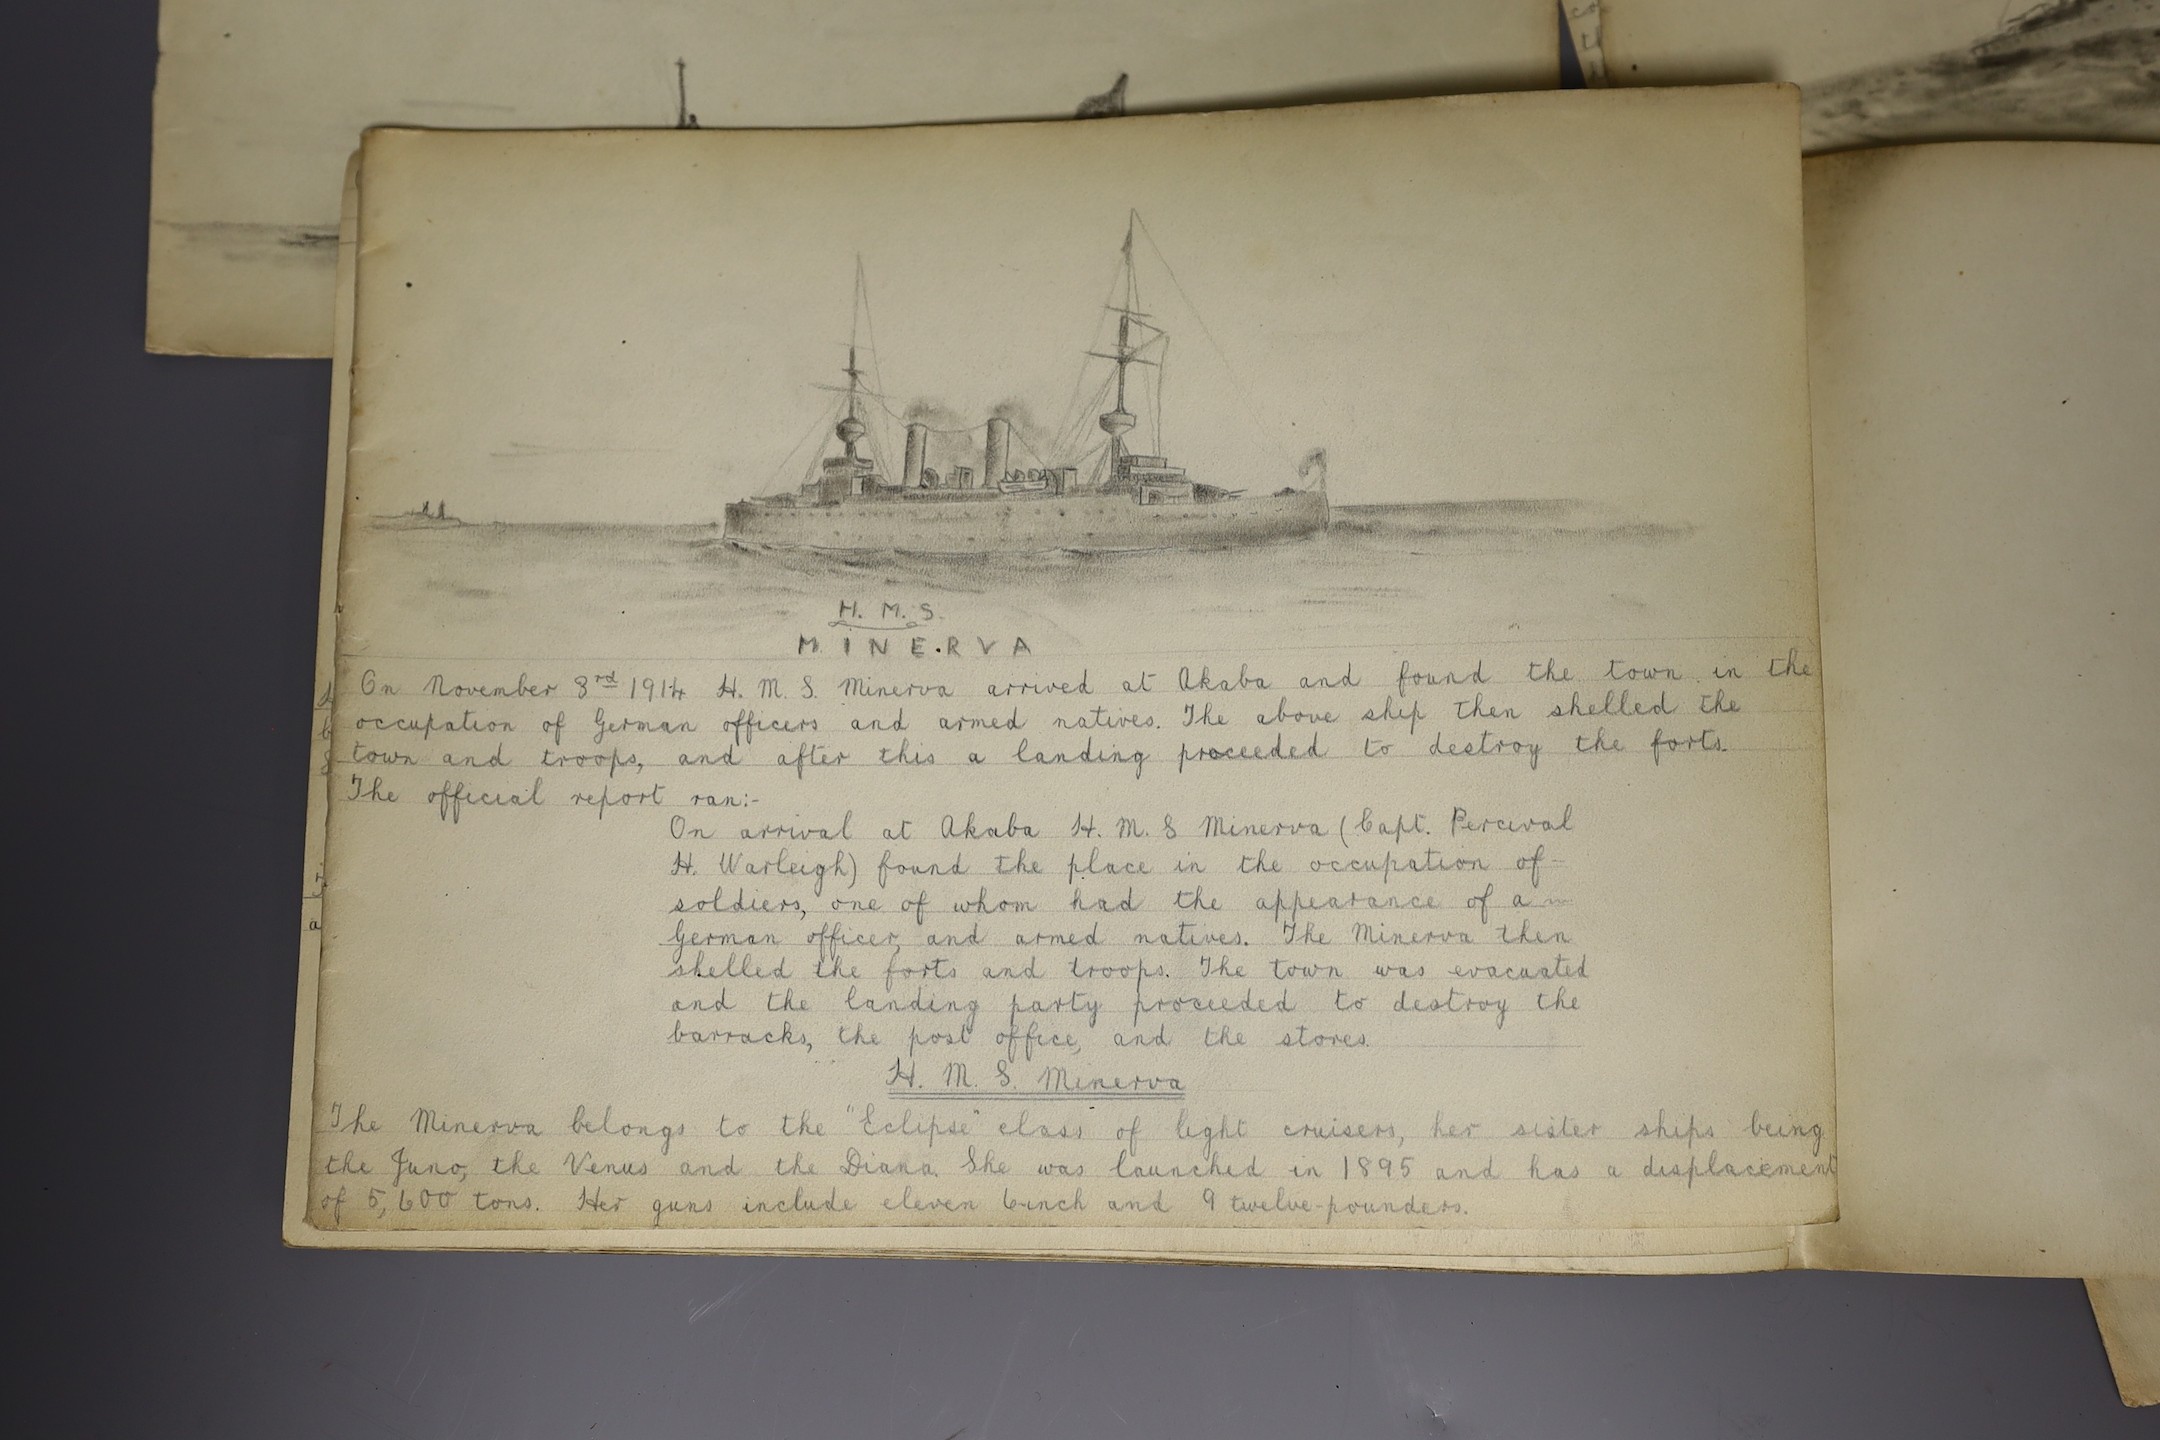 H. M. S.
MINERVA
On November 3rd 1914 H. M. S. Minerva arrived at Akaba and found the town in the
occupation of German officers and armed natives. The above ship then shelled the
town and troops, and after this a landing proceeded to destroy the forts.
The official report ran:-
On arrival at Akaba H. M. S Minerva (Capt. Percival
H. Warleigh) found the place in the occupation of
soldiers, one of whom had the appearance of a
German officer, and armed natives. The Minerva then
shelled the forts and troops. The town was evacuated
and the landing party proceeded to destroy the
barracks, the post office, and the stores.
H. M. S. Minerva
The Minerva belongs to the "Eclipse" class of light cruisers, her sister ships being
the Juno, the Venus and the Diana. She was launched in 1895 and has a displacement
of 5,600 tons. Her guns include eleven 6-inch and 9 twelve-pounders.